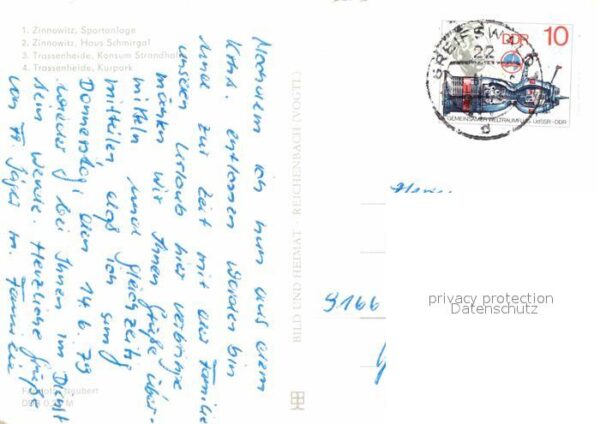 1. Zinnowitz, Sportanlage
2. Zinnowitz, Haus Schmirgal
3. Trassenheide, Konsum Strandhalle
4. Trassenheide, Kurpark
Nachdem ich nun aus dem
Krkh. entlassen worden bin
und zur Zeit mit der Familie
unseren Urlaub hier verbringe
möchten wir Ihnen Grüße über-
mitteln und gleichzeitig
mitteilen daß ich
Donnerstag den 14.6.79
wieder bei Ihnen im Dienst
sein werde. Herzliche Grüße
von Fr. Jäger m. Familie
BILD UND HEIMAT · REICHENBACH (VOGTL)
GREIFSWALD
22
d
DDR 10
GEMEINSAMER WELTRAUMFLUG UdSSR-DDR
9166
privacy protection
Datenschutz